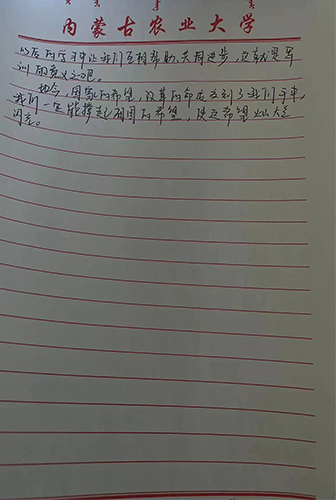 内蒙古农业大学
以后的学习中让我们互相帮助、共同进步,这就是军
训的意义之一吧。
如今,国家的希望,改革的命运交到了我们手中,
我们一定能撑起祖国的希望,使这希望如
闪亮。